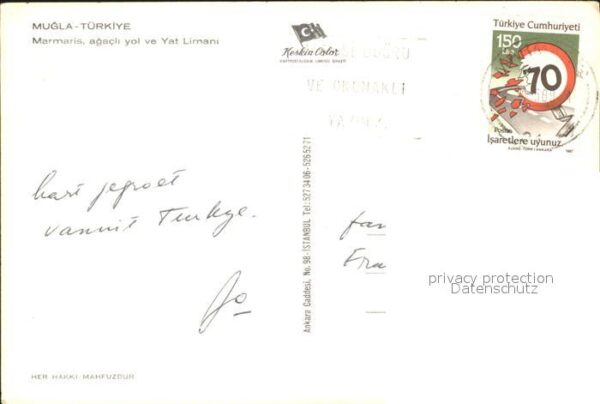 MUĞLA - TÜRKİYE
Marmaris, ağaçlı yol ve Yat Limanı
Keskin Color
KARTPOSTALCILIK LIMITED ŞİRKETİ
DOĞRU
VE OKUNAKLI
YAZINIZ
Türkiye Cumhuriyeti
150
70
İşaretlere uyunuz
AJANS-TÜRK / ANKARA 1987
hart
vanuit Turkye.
Jo
Ankara Caddesi, No. 98 - İSTANBUL Tel: 5273406-5265271
fam
Fra
privacy protection
Datenschutz
HER HAKKI MAHFUZDUR